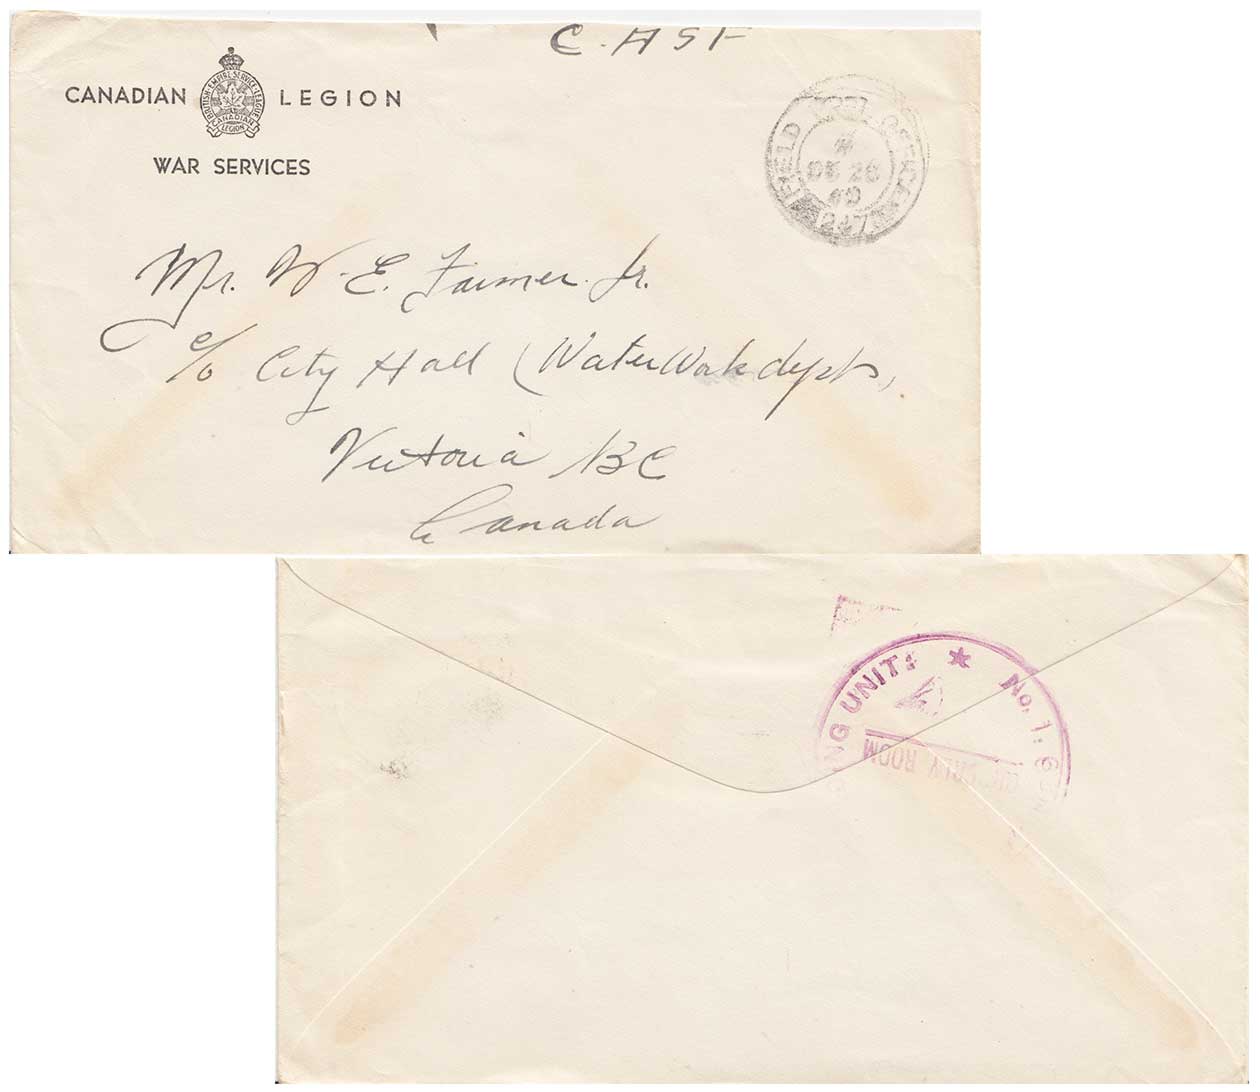 C. A S F
CANADIAN LEGION
BRITISH·EMPIRE·SERVICE·LEAGUE
CANADIAN
LEGION
WAR SERVICES
FIELD OFFICE
DE 26
40
247
Mr. W. E. Farmer Jr.
c/o City Hall (Water Work dept,
Victoria BC
Canada
ING UNIT ★ No. 1
ROOM